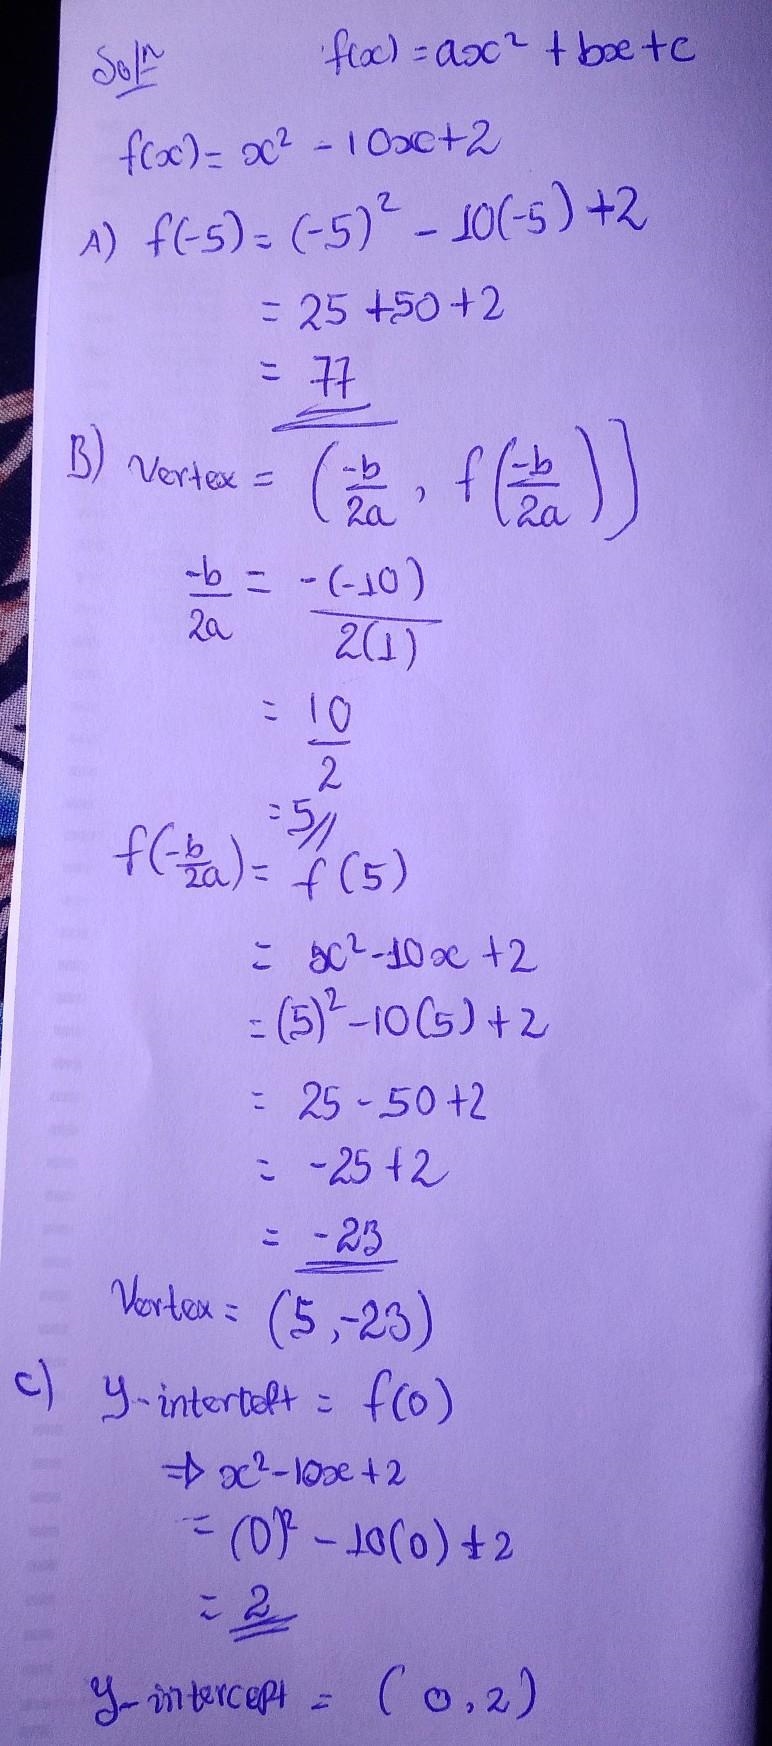 Soln f(x) = ax² + bx + c
f(x) = x² - 10x + 2
A) f(-5) = (-5)² - 10(-5) + 2
= 25 + 50 + 2
= 77
B) Vertex = (-b/2a, f(-b/2a)]
-b/2a = -(-10)/2(1)
= 10/2
= 5//
f(-b/2a) = f(5)
= x² - 10x + 2
= (5)² - 10(5) + 2
= 25 - 50 + 2
= -25 + 2
= -23
Vertex = (5, -23)
C) y-intercept = f(0)
⇒ x² - 10x + 2
= (0)² - 10(0) + 2
= 2
y-intercept = (0, 2)